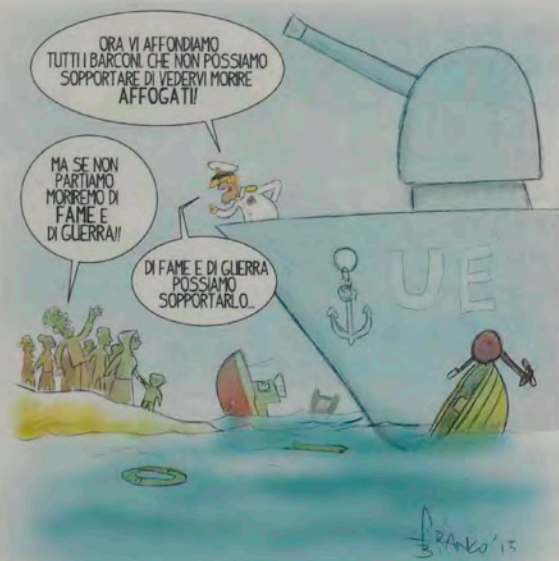 ORA VI AFFONDIAMO
TUTTI I BARCONI, CHE NON POSSIAMO
SOPPORTARE DI VEDERVI MORIRE
AFFOGATI!
MA SE NON
PARTIAMO
MORIREMO DI
FAME E
DI GUERRA!!
DI FAME E DI GUERRA
POSSIAMO
SOPPORTARLO...
UE